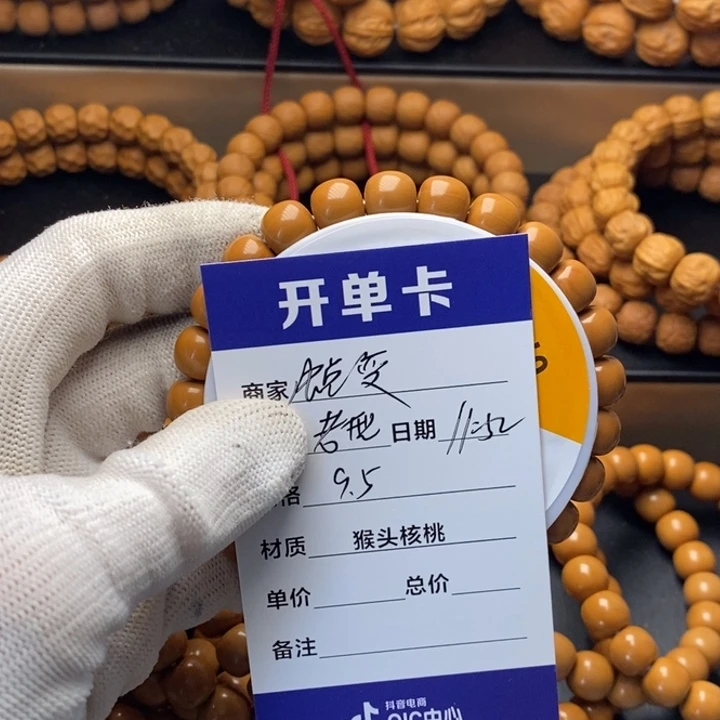 开单卡
商家
老 日期 11:52
格 9.5
材质 猴头核桃
单价 总价
备注
抖音电商
QIC中心
5